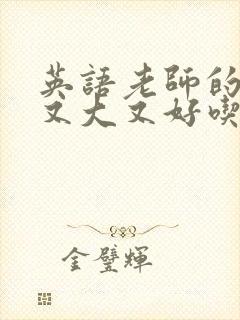 英語老師的
又大又好喫
金璧輝